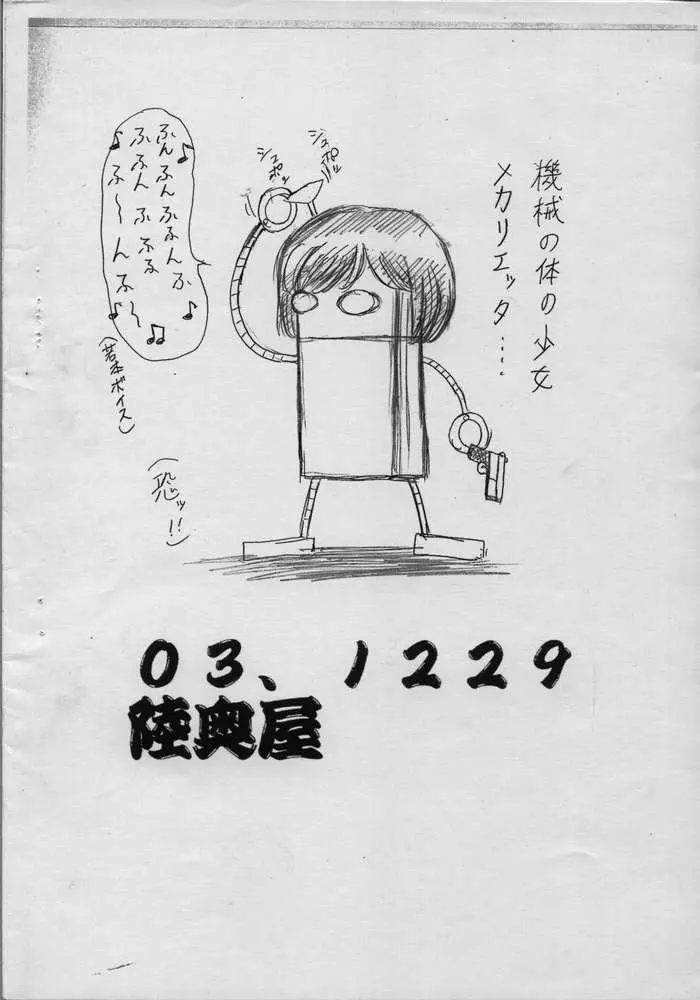 機械の体の少女
メカリエッタ‥‥
ジュポッ
ジュポッ
ふんふんふふんふ
ふふんふふふ
ふ〜んふ〜
(若本ボイス)
(恐ッ!!)
03、1229
陸奥屋